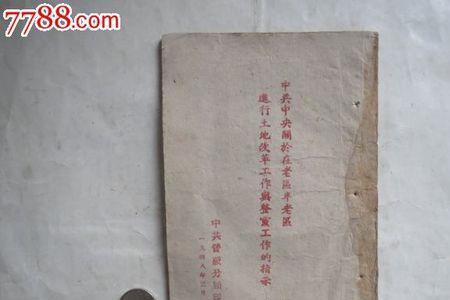 7788.com
中共中央關於在老區半老區
進行土地改革工作與整黨工作的指示
中共晉綏分局印
一九四八年三月